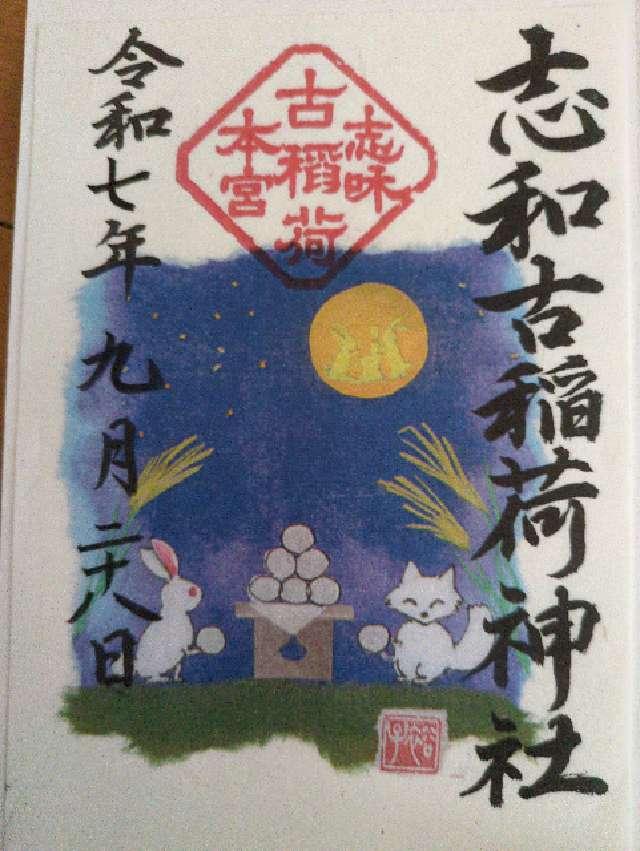 志和古稲荷神社
志味
古稲荷
本宮
令和七年 九月二十八日